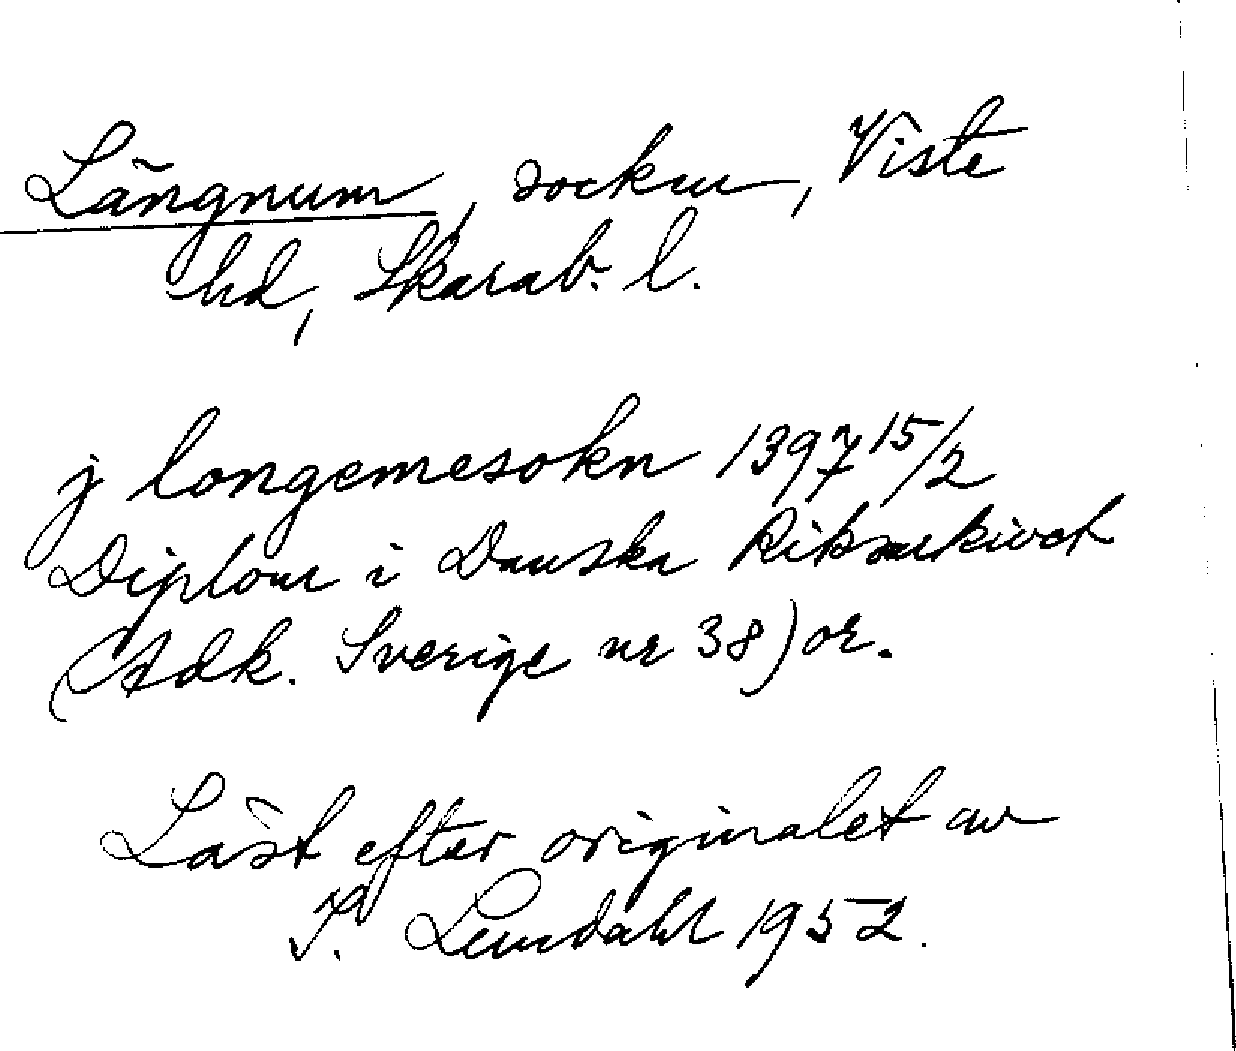 Längnum, socken, Viste
hd, Skarab. l.
j longemesokn 1397 15/2
Diplom i Danska Riksarkivet
(Adk. Sverige nr 38) or.
Läst efter originalet av
I. Lundahl 1952.